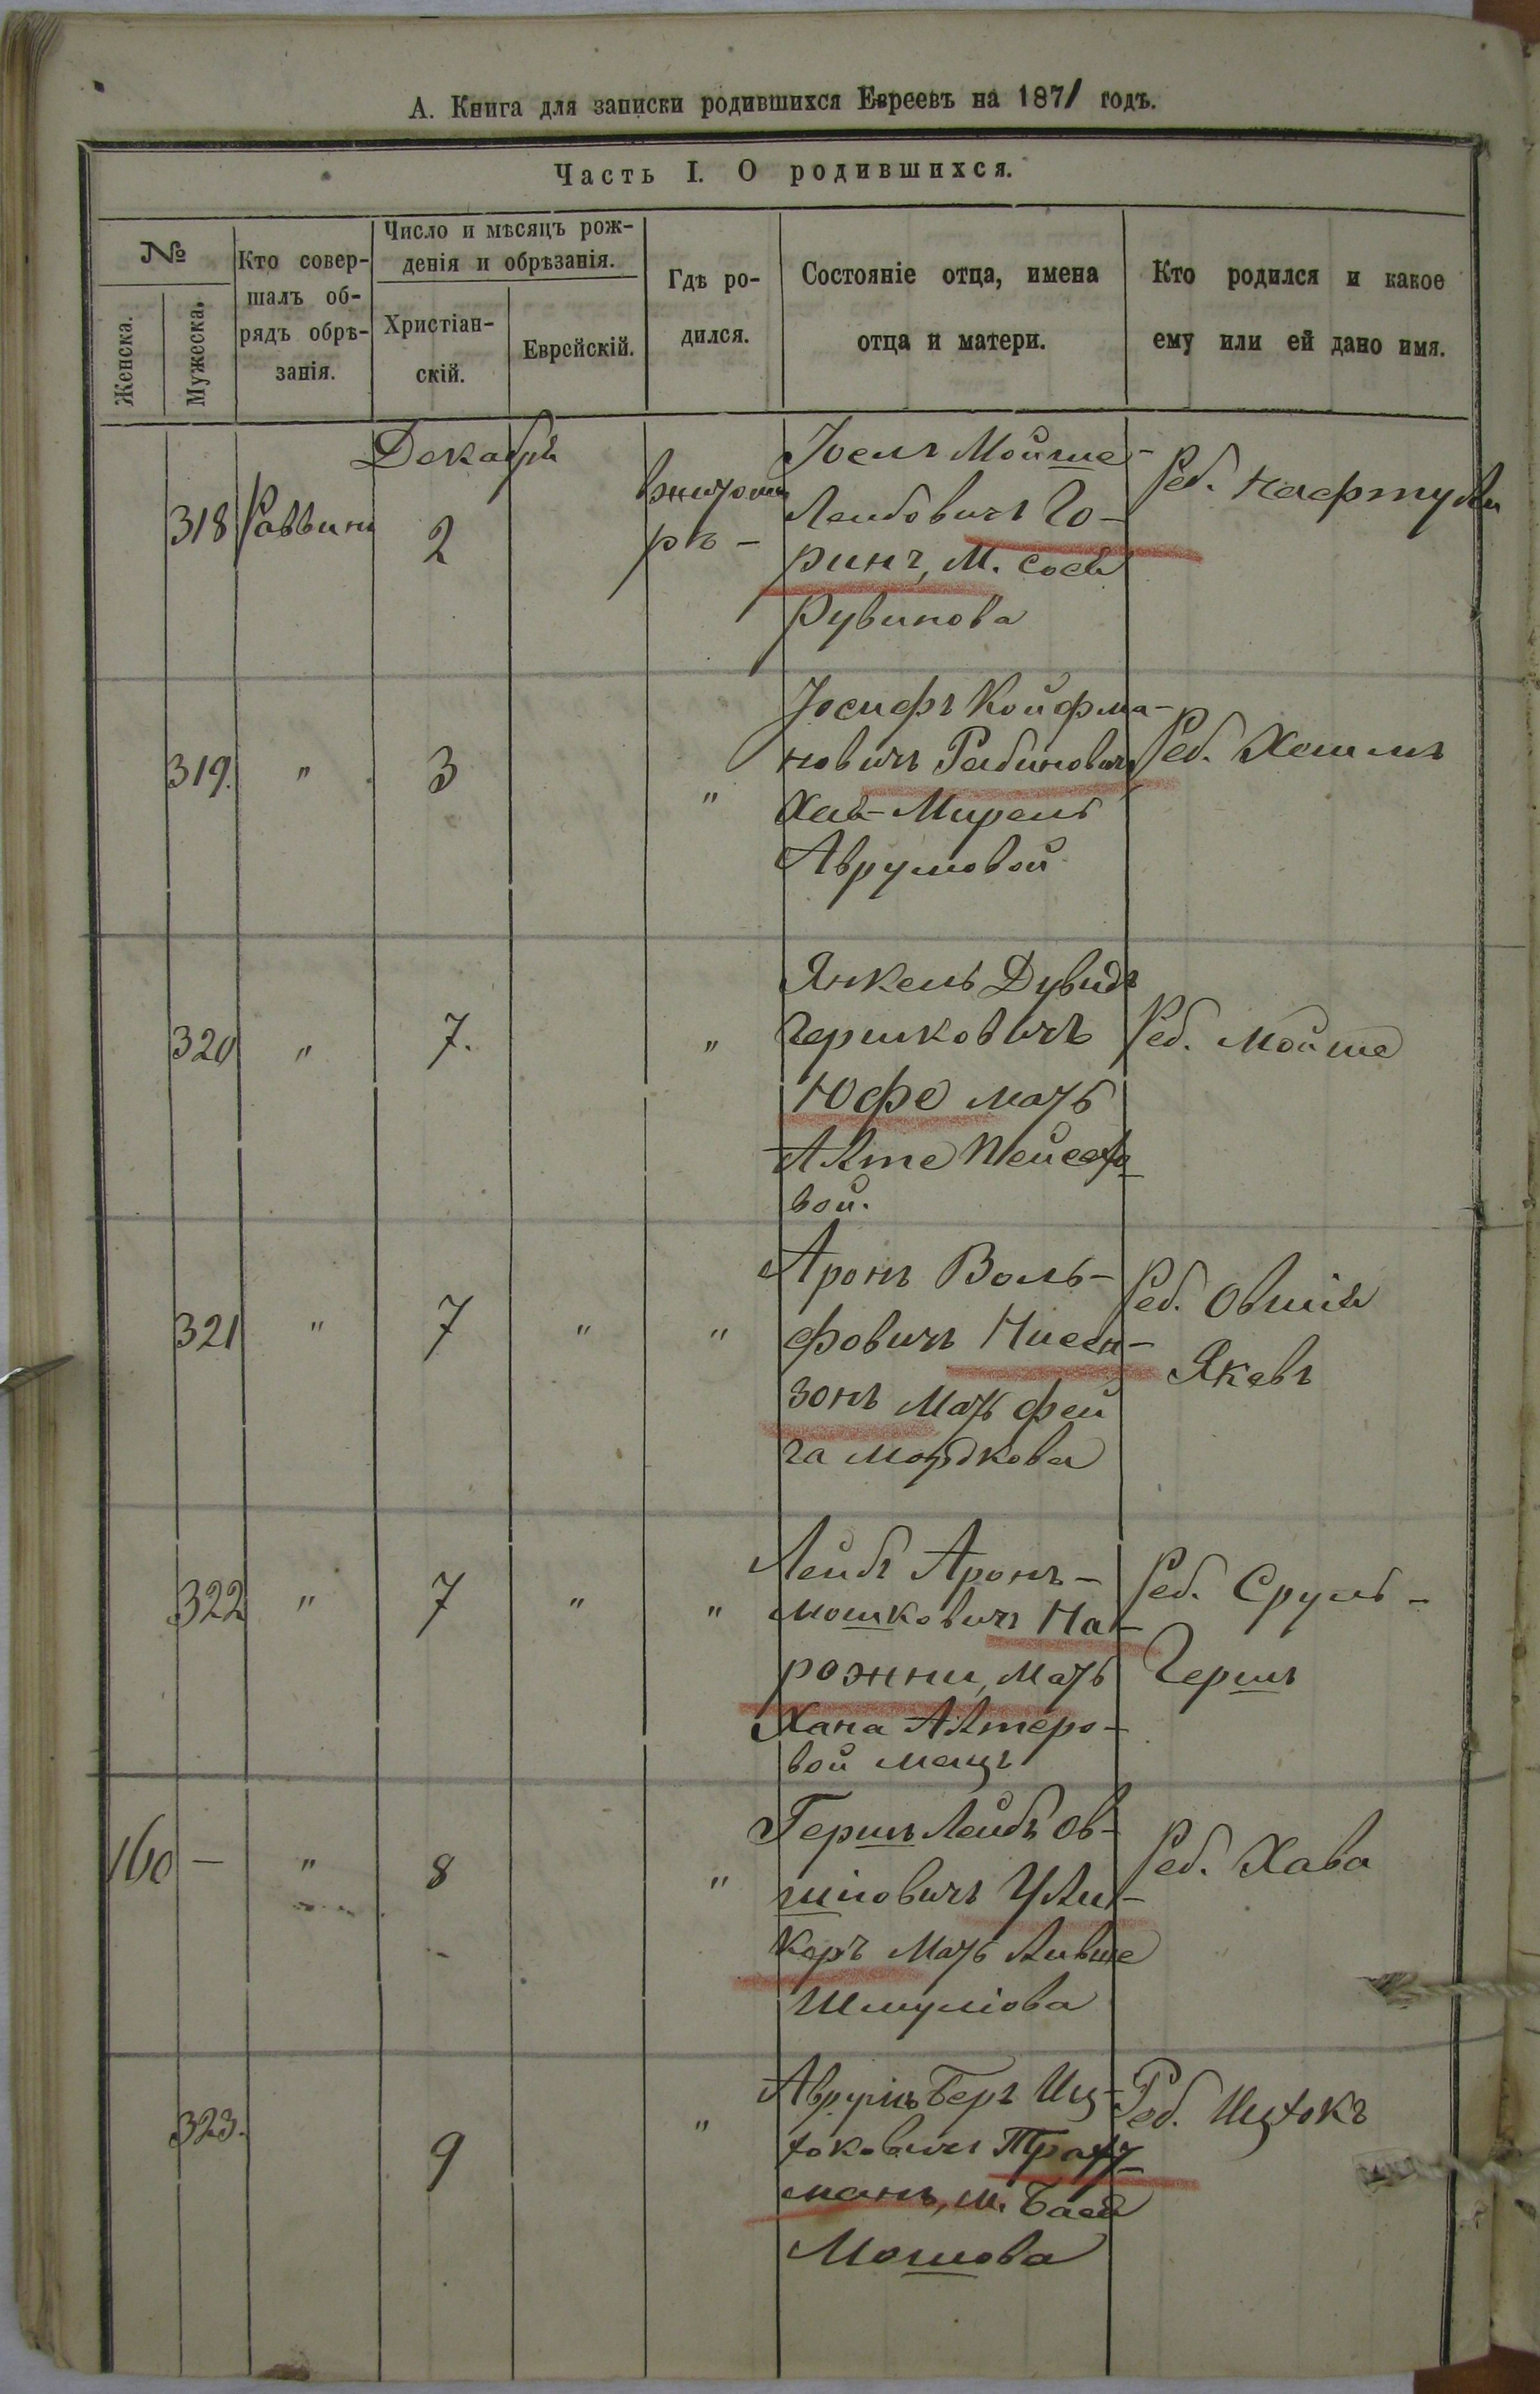 А. Книга для записки родившихся Евреевъ на 1871 годъ.
Часть I. О родившихся.
№
Женска.
Мужеска.
Кто совер-
шалъ об-
рядъ обрѣ-
занія.
Число и мѣсяцъ рож-
денія и обрѣзанія.
Христіан-
скій.
Еврейскій.
Гдѣ ро-
дился.
Состояніе отца, имена
отца и матери.
Кто родился и какое
ему или ей дано имя.
Декабрь
318 Раввинъ 2
вжитоми
рѣ -
Іоель Мойше-
Лейбовичъ Го-
ринъ, М. Сося
Рувинова
Реб. Нафтули
319. " 3 "
Іосифъ Койфма-
новичъ Рабиновичъ
Хая-Мирель
Аврумовой
Реб. Хешель
320 " 7. "
Янкель Дувидъ
Гершковичъ
Юфе мать
Алте Пейсахо
вой.
Реб. Мойше
321 " 7 " "
Аронъ Воль-
фовичъ Нисен-
зонъ Мать Фей
га Мордкова
Реб. Овшія
Якевъ
322 " 7 " "
Лейбъ Аронъ-
Мошковичъ На-
рожни, Мать
Хана Алтеро-
вой мещ.
Реб. Сруль -
Гершъ
160 - " 8 "
Гершъ Лейбъ Ов-
шіовичъ Ули-
керъ Мать Ливше
Шмуліова
Реб. Хава
323. 9 "
Аврумъ Беръ Иц-
хоковичъ
манъ, М. Бася
Мошова
Реб. Ицхокъ